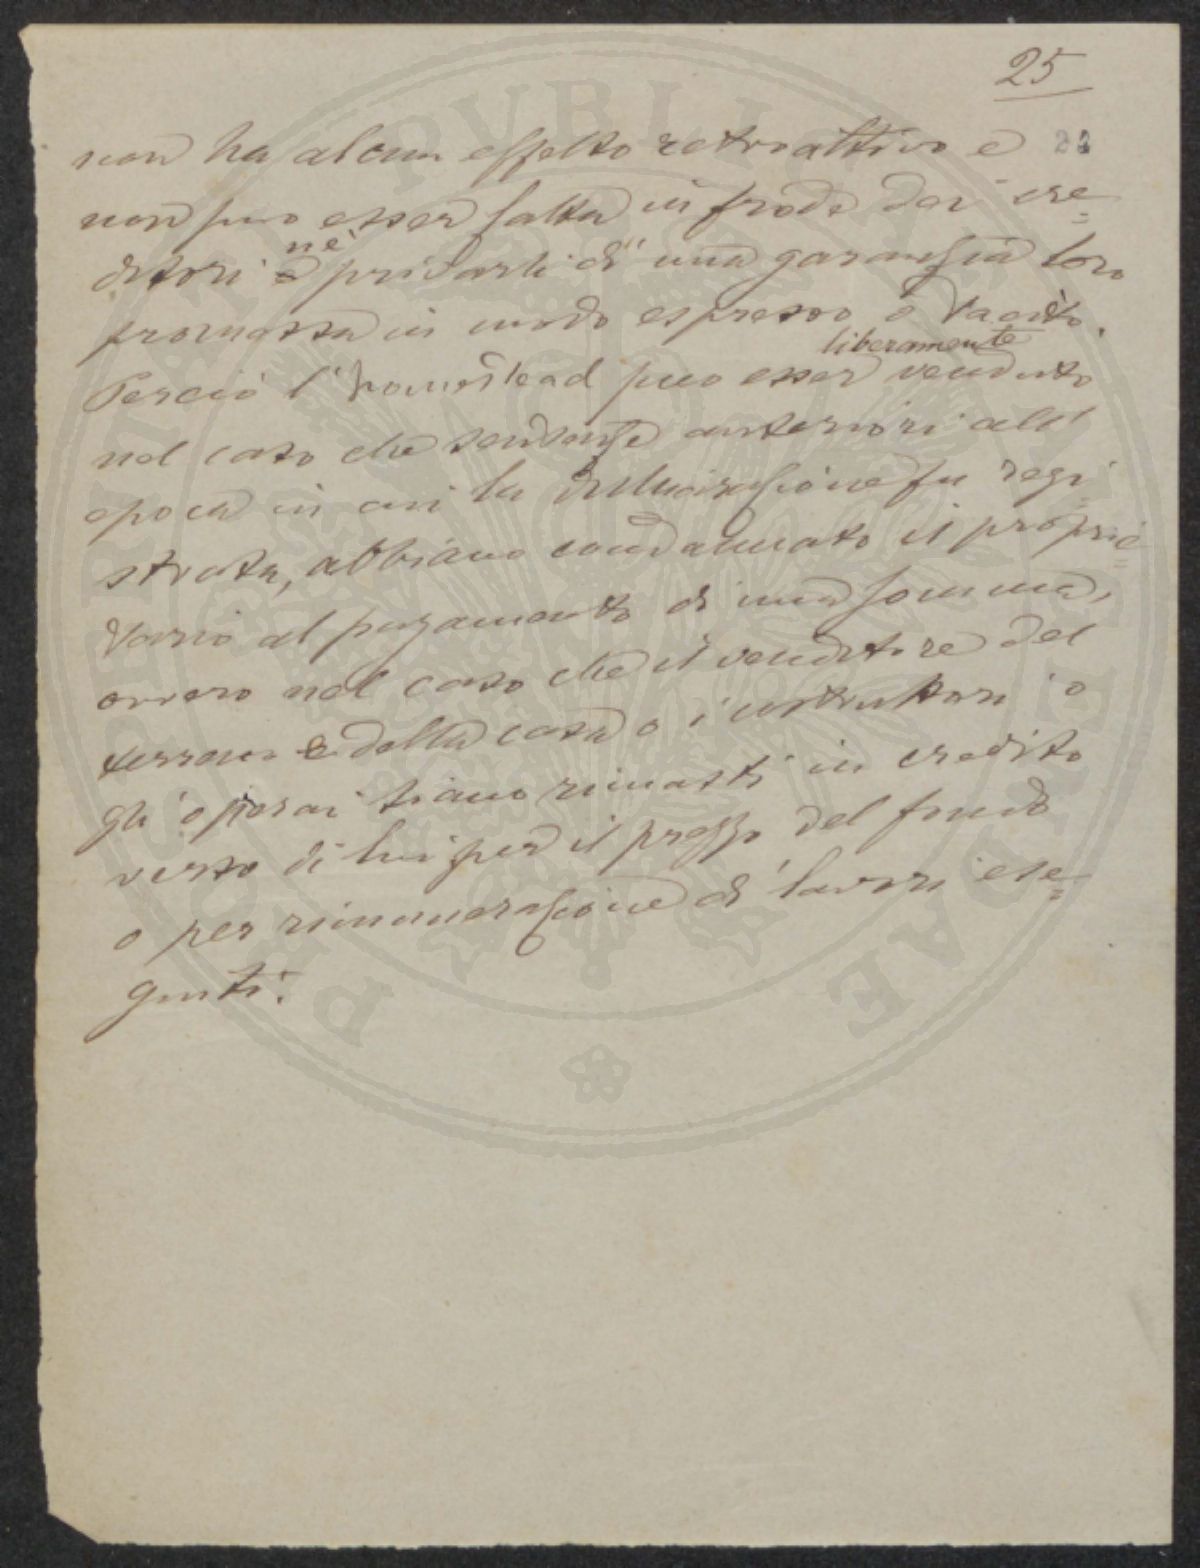 25
non ha alcun effetto retroattivo e
non può esser fatta in frode dei cre=
ditori e né privarli di una garanzia loro
promossa in modo espresso o tacito.
Perciò l'homestead può esser liberamente venduto
nel caso che sentenze anteriori all'
epoca in cui la dichiarazione fu regi
strata, abbiano condannato il proprie=
tario al pagamento di una somma,
ovvero nel caso che il venditore del
terreno e della casa o i costruttori o
gli operai siano rimasti in credito
verso di lui per il prezzo del fondo
o per rimunerazione di lavori ese=
guiti.